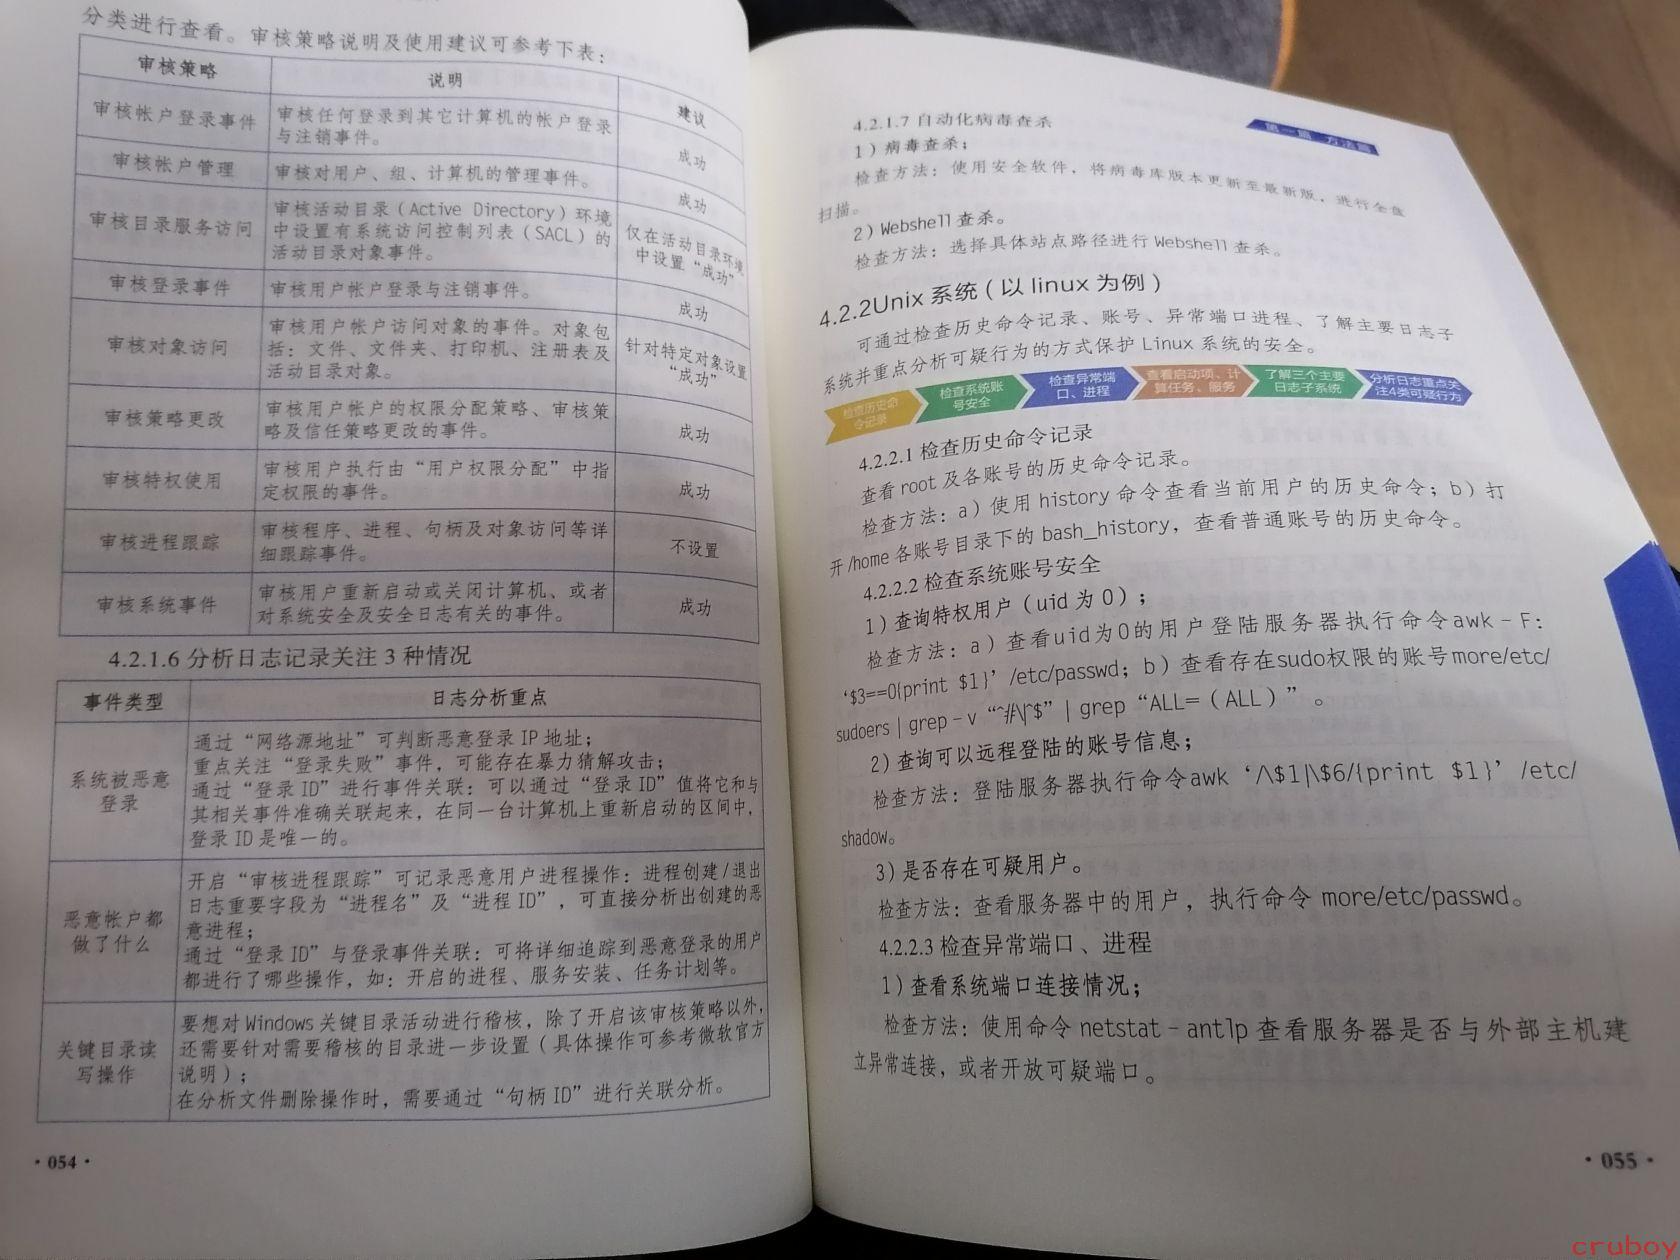 分类进行查看。审核策略说明及使用建议可参考下表：
审核策略
说明
建议
审核帐户登录事件
审核任何登录到其它计算机的帐户登录
与注销事件。
成功
审核帐户管理
审核对用户、组、计算机的管理事件。
成功
审核目录服务访问
审核活动目录（Active Directory）环境
中设置有系统访问控制列表（SACL）的
活动目录对象事件。
仅在活动目录环境
中设置“成功”
审核登录事件
审核用户帐户登录与注销事件。
成功
审核对象访问
审核用户帐户访问对象的事件。对象包
括：文件、文件夹、打印机、注册表及
活动目录对象。
针对特定对象设置
“成功”
审核策略更改
审核用户帐户的权限分配策略、审核策
略及信任策略更改的事件。
成功
审核特权使用
审核用户执行由“用户权限分配”中指
定权限的事件。
成功
审核进程跟踪
审核程序、进程、句柄及对象访问等详
细跟踪事件。
不设置
审核系统事件
审核用户重新启动或关闭计算机、或者
对系统安全及安全日志有关的事件。
成功
4.2.1.6 分析日志记录关注 3 种情况
事件类型
日志分析重点
系统被恶意
登录
通过“网络源地址”可判断恶意登录 IP 地址；
重点关注“登录失败”事件，可能存在暴力猜解攻击；
通过“登录 ID”进行事件关联：可以通过“登录 ID”值将它和与
其相关事件准确关联起来，在同一台计算机上重新启动的区间中，
登录 ID 是唯一的。
恶意帐户都
做了什么
开启“审核进程跟踪”可记录恶意用户进程操作：进程创建/退出
日志重要字段为“进程名”及“进程 ID”，可直接分析出创建的恶
意进程；
通过“登录 ID”与登录事件关联：可将详细追踪到恶意登录的用户
都进行了哪些操作，如：开启的进程、服务安装、任务计划等。
关键目录读
写操作
要想对 Windows 关键目录活动进行稽核，除了开启该审核策略以外，
还需要针对需要稽核的目录进一步设置（具体操作可参考微软官方
说明）；
在分析文件删除操作时，需要通过“句柄 ID”进行关联分析。
·054·
第一篇 方法篇
4.2.1.7 自动化病毒查杀
1）病毒查杀；
检查方法：使用安全软件，将病毒库版本更新至最新版，进行全盘
扫描。
2）Webshell 查杀。
检查方法：选择具体站点路径进行 Webshell 查杀。
4.2.2Unix 系统（以 linux 为例）
可通过检查历史命令记录、账号、异常端口进程、了解主要日志子
系统并重点分析可疑行为的方式保护 Linux 系统的安全。
检查历史命
令记录
检查系统账
号安全
检查异常端
口、进程
查看启动项、计
算任务、服务
了解三个主要
日志子系统
分析日志重点关
注4类可疑行为
4.2.2.1 检查历史命令记录
查看 root 及各账号的历史命令记录。
检查方法：a）使用 history 命令查看当前用户的历史命令；b）打
开 /home 各账号目录下的 bash_history，查看普通账号的历史命令。
4.2.2.2 检查系统账号安全
1）查询特权用户（uid 为 0）；
检查方法：a）查看uid为0的用户登陆服务器执行命令awk－F：
‘$3==0{print $1}’/etc/passwd；b）查看存在sudo权限的账号more/etc/
sudoers | grep－v “^#\|^$” | grep “ALL=（ALL）”。
2）查询可以远程登陆的账号信息；
检查方法：登陆服务器执行命令awk ‘/\$1|\$6/{print $1}’ /etc/
shadow。
3）是否存在可疑用户。
检查方法：查看服务器中的用户，执行命令 more/etc/passwd。
4.2.2.3 检查异常端口、进程
1）查看系统端口连接情况；
检查方法：使用命令 netstat－antlp 查看服务器是否与外部主机建
立异常连接，或者开放可疑端口。
·055·
cruboy